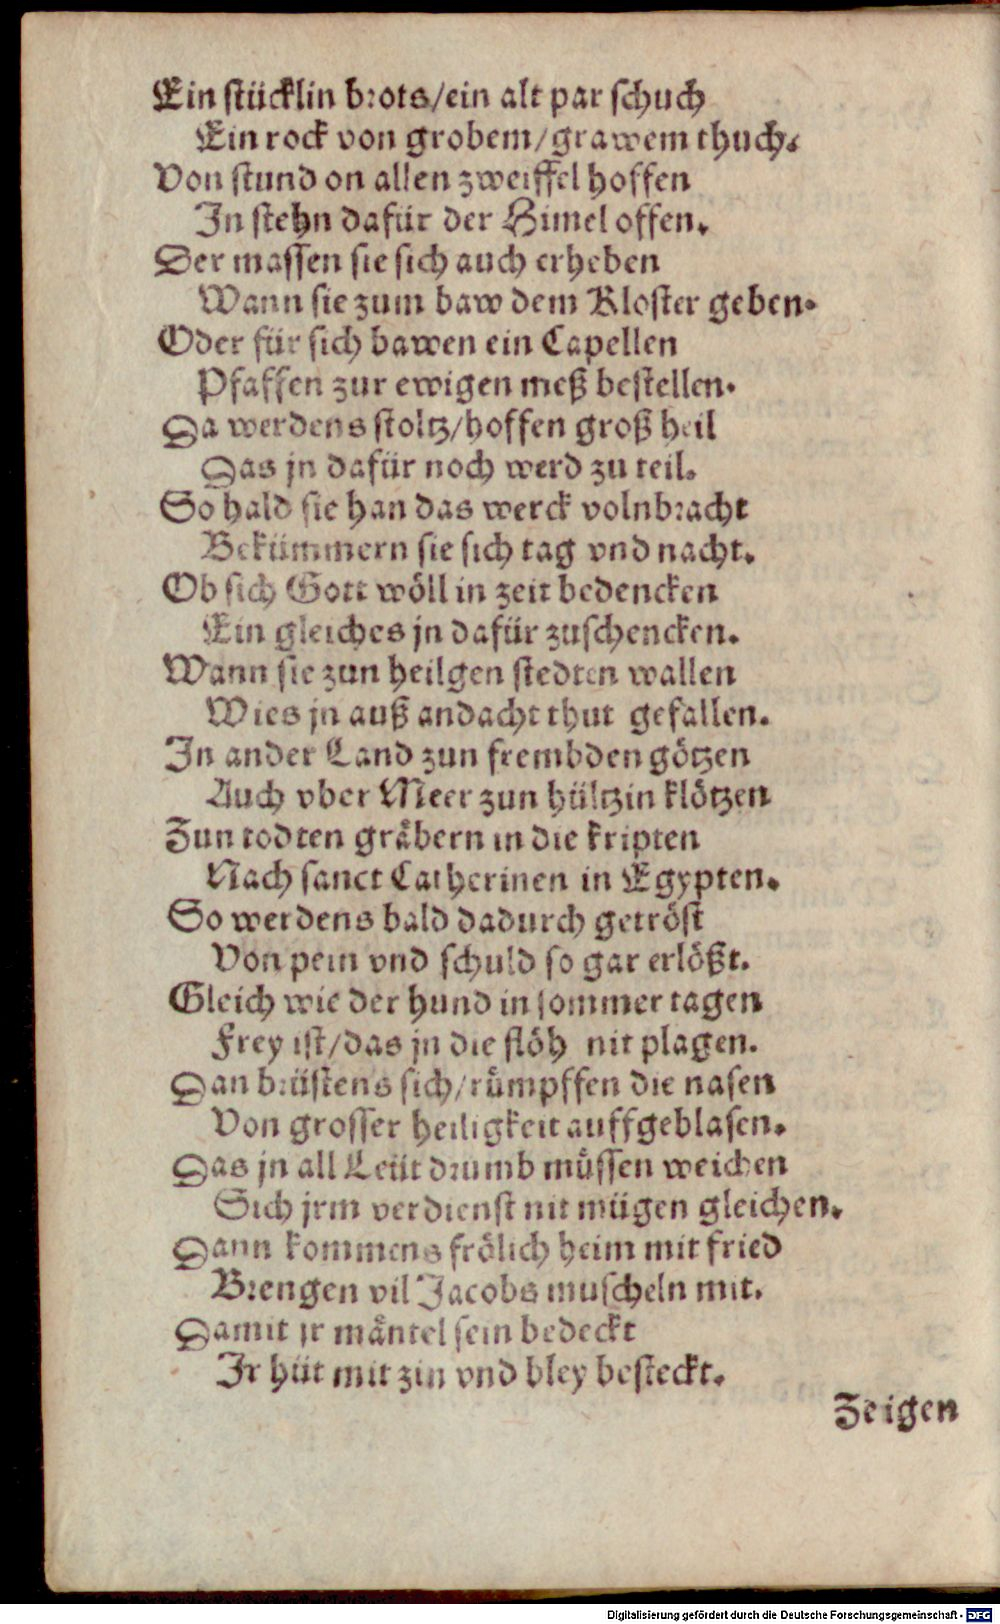 Ein stücklin brots/ein alt par schuch
Ein rock von grobem/grawem thuch.
Von stund on allen zweiffel hoffen
In stehn dafür der Himel offen.
Der massen sie sich auch erheben
Wann sie zum baw dem Kloster geben.
Oder für sich bawen ein Capellen
Pfaffen zur ewigen meß bestellen.
Da werdens stoltz/hoffen groß heil
Das jn dafür noch werd zu teil.
So bald sie han das werck volnbracht
Bekümmern sie sich tag vnd nacht.
Ob sich Gott wöll in zeit bedencken
Ein gleiches jn dafür zuschencken.
Wann sie zun heilgen stedten wallen
Wies jn auß andacht thut gefallen.
In ander Land zun frembden götzen
Auch vber Meer zun hültzin klötzen
Zun todten gräbern in die kripten
Nach sanct Catherinen in Egypten.
So werdens bald dadurch getröst
Von pein vnd schuld so gar erlößt.
Gleich wie der hund in sommer tagen
Frey ist/das jn die flöh nit plagen.
Dan brüstens sich/rümpffen die nasen
Von grosser heiligkeit auffgeblasen.
Das jn all Leüt drumb müssen weichen
Sich jrm verdienst nit mügen gleichen.
Dann kommens frölich heim mit fried
Brengen vil Jacobs muscheln mit.
Damit jr mäntel sein bedeckt
Ir hüt mit zin vnd bley besteckt.
Zeigen
Digitalisierung gefördert durch die Deutsche Forschungsgemeinschaft - DFG